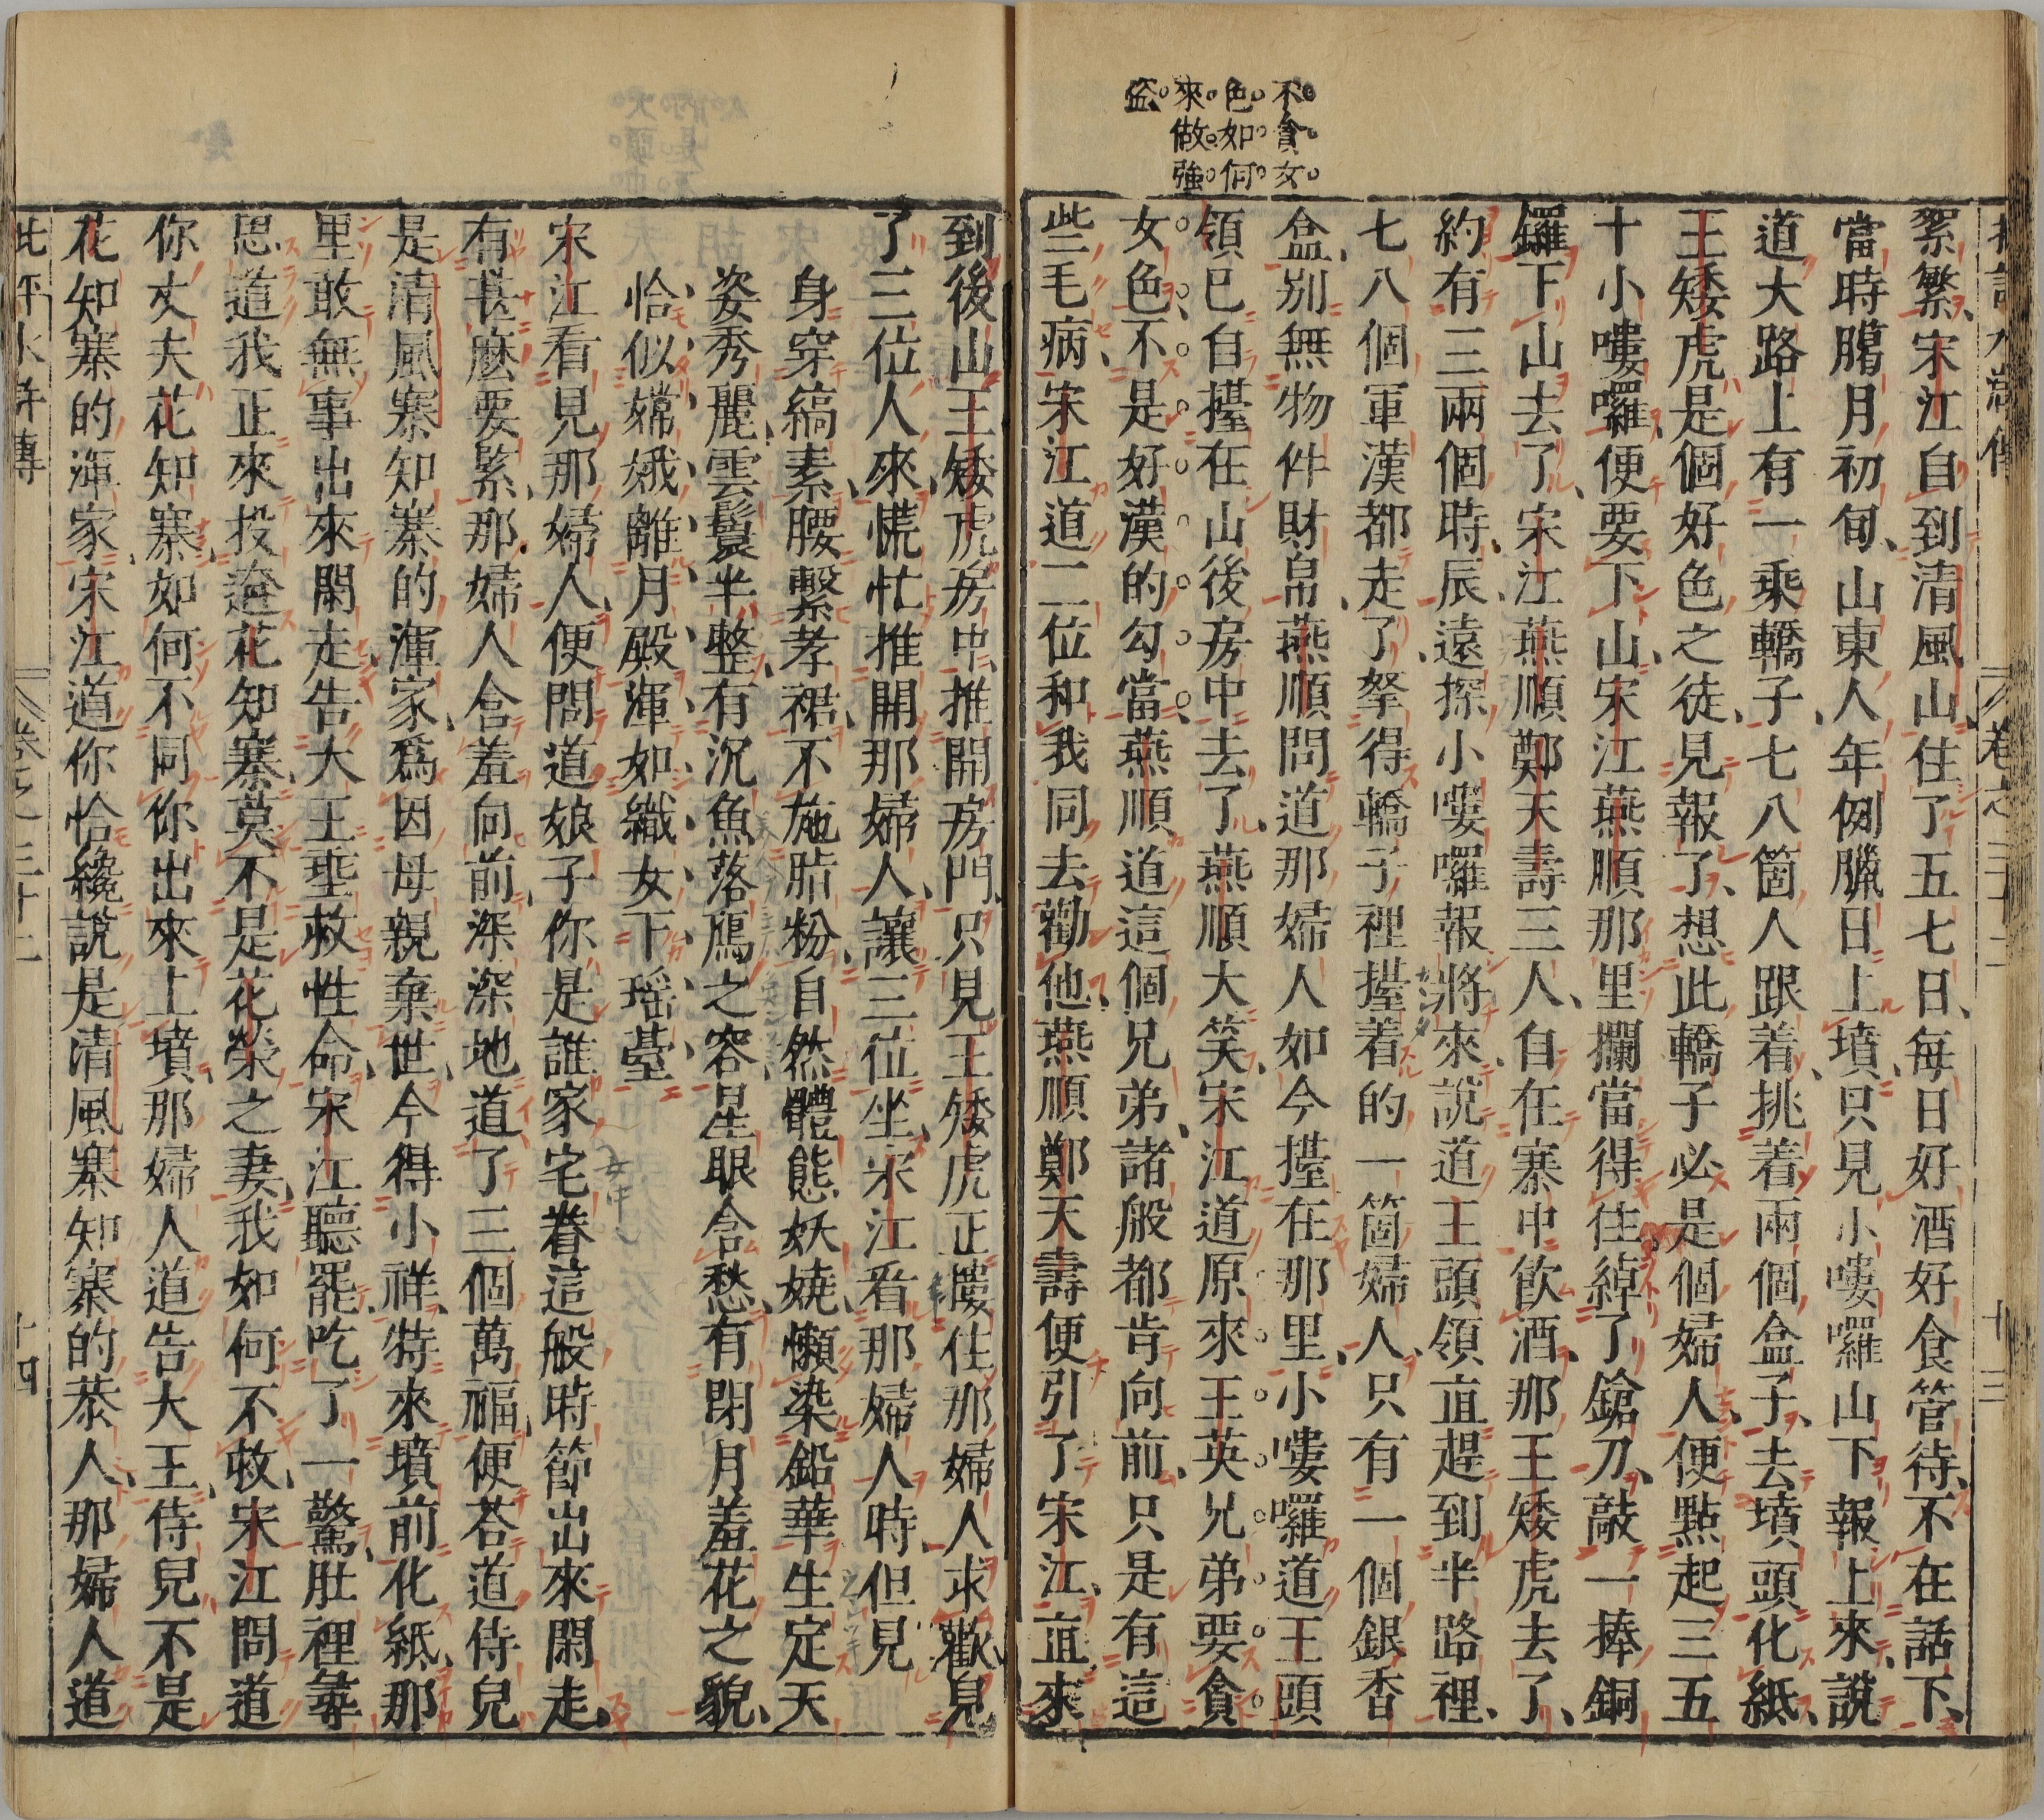 不貪女
色如何
來做強
盜
絮繁宋江自到清風山住了五七日每日好酒好食管待不在話下
當時臘月初旬山東人年例臘日上墳只見小嘍囉山下報上來說
道大路上有一乘轎子七八箇人跟着挑着兩個盒子去墳頭化紙
王矮虎是個好色之徒見報了想此轎子必是個婦人便點起三五
十小嘍囉便要下山宋江燕順那里攔當得住綽了鎗刀敲一捧銅
鑼下山去了宋江燕順鄭天壽三人自在寨中飲酒那王矮虎去了
約有三兩個時辰遠探小嘍囉報將來說道王頭領直趕到半路裡
七八個軍漢都走了拏得轎子裡擡着的一箇婦人只有一個銀香
盒別無物件財帛燕順問道那婦人如今擡在那里小嘍囉道王頭
領已自擡在山後房中去了燕順大笑宋江道原來王英兄弟要貪
女色不是好漢的勾當燕順道這個兄弟諸般都肯向前只是有這
些毛病宋江道二位和我同去勸他燕順鄭天壽便引了宋江直來
到後山王矮虎房中推開房門只見王矮虎正摟住那婦人求歡見
了三位人來慌忙推開那婦人讓三位坐宋江看那婦人時但見
身穿縞素腰繫孝裙不施脂粉自然體態妖嬈懶染鉛華生定天
姿秀麗雲鬟半整有沉魚落鴈之容星眼含愁有閉月羞花之貌
恰似嫦娥離月殿渾如織女下瑤臺
宋江看見那婦人便問道娘子你是誰家宅眷這般時節出來閑走
有甚麽要緊那婦人含羞向前深深地道了三個萬福便荅道侍兒
是清風寨知寨的渾家爲因母親棄世今得小祥特來墳前化紙那
里敢無事出來閑走告大王垂救性命宋江聽罷吃了一驚肚裡尋
思道我正來投逩花知寨莫不是花榮之妻我如何不救宋江問道
你丈夫花知寨如何不同你出來上墳那婦人道告大王侍兒不是
花知寨的渾家宋江道你恰纔說是清風寨知寨的恭人那婦人道